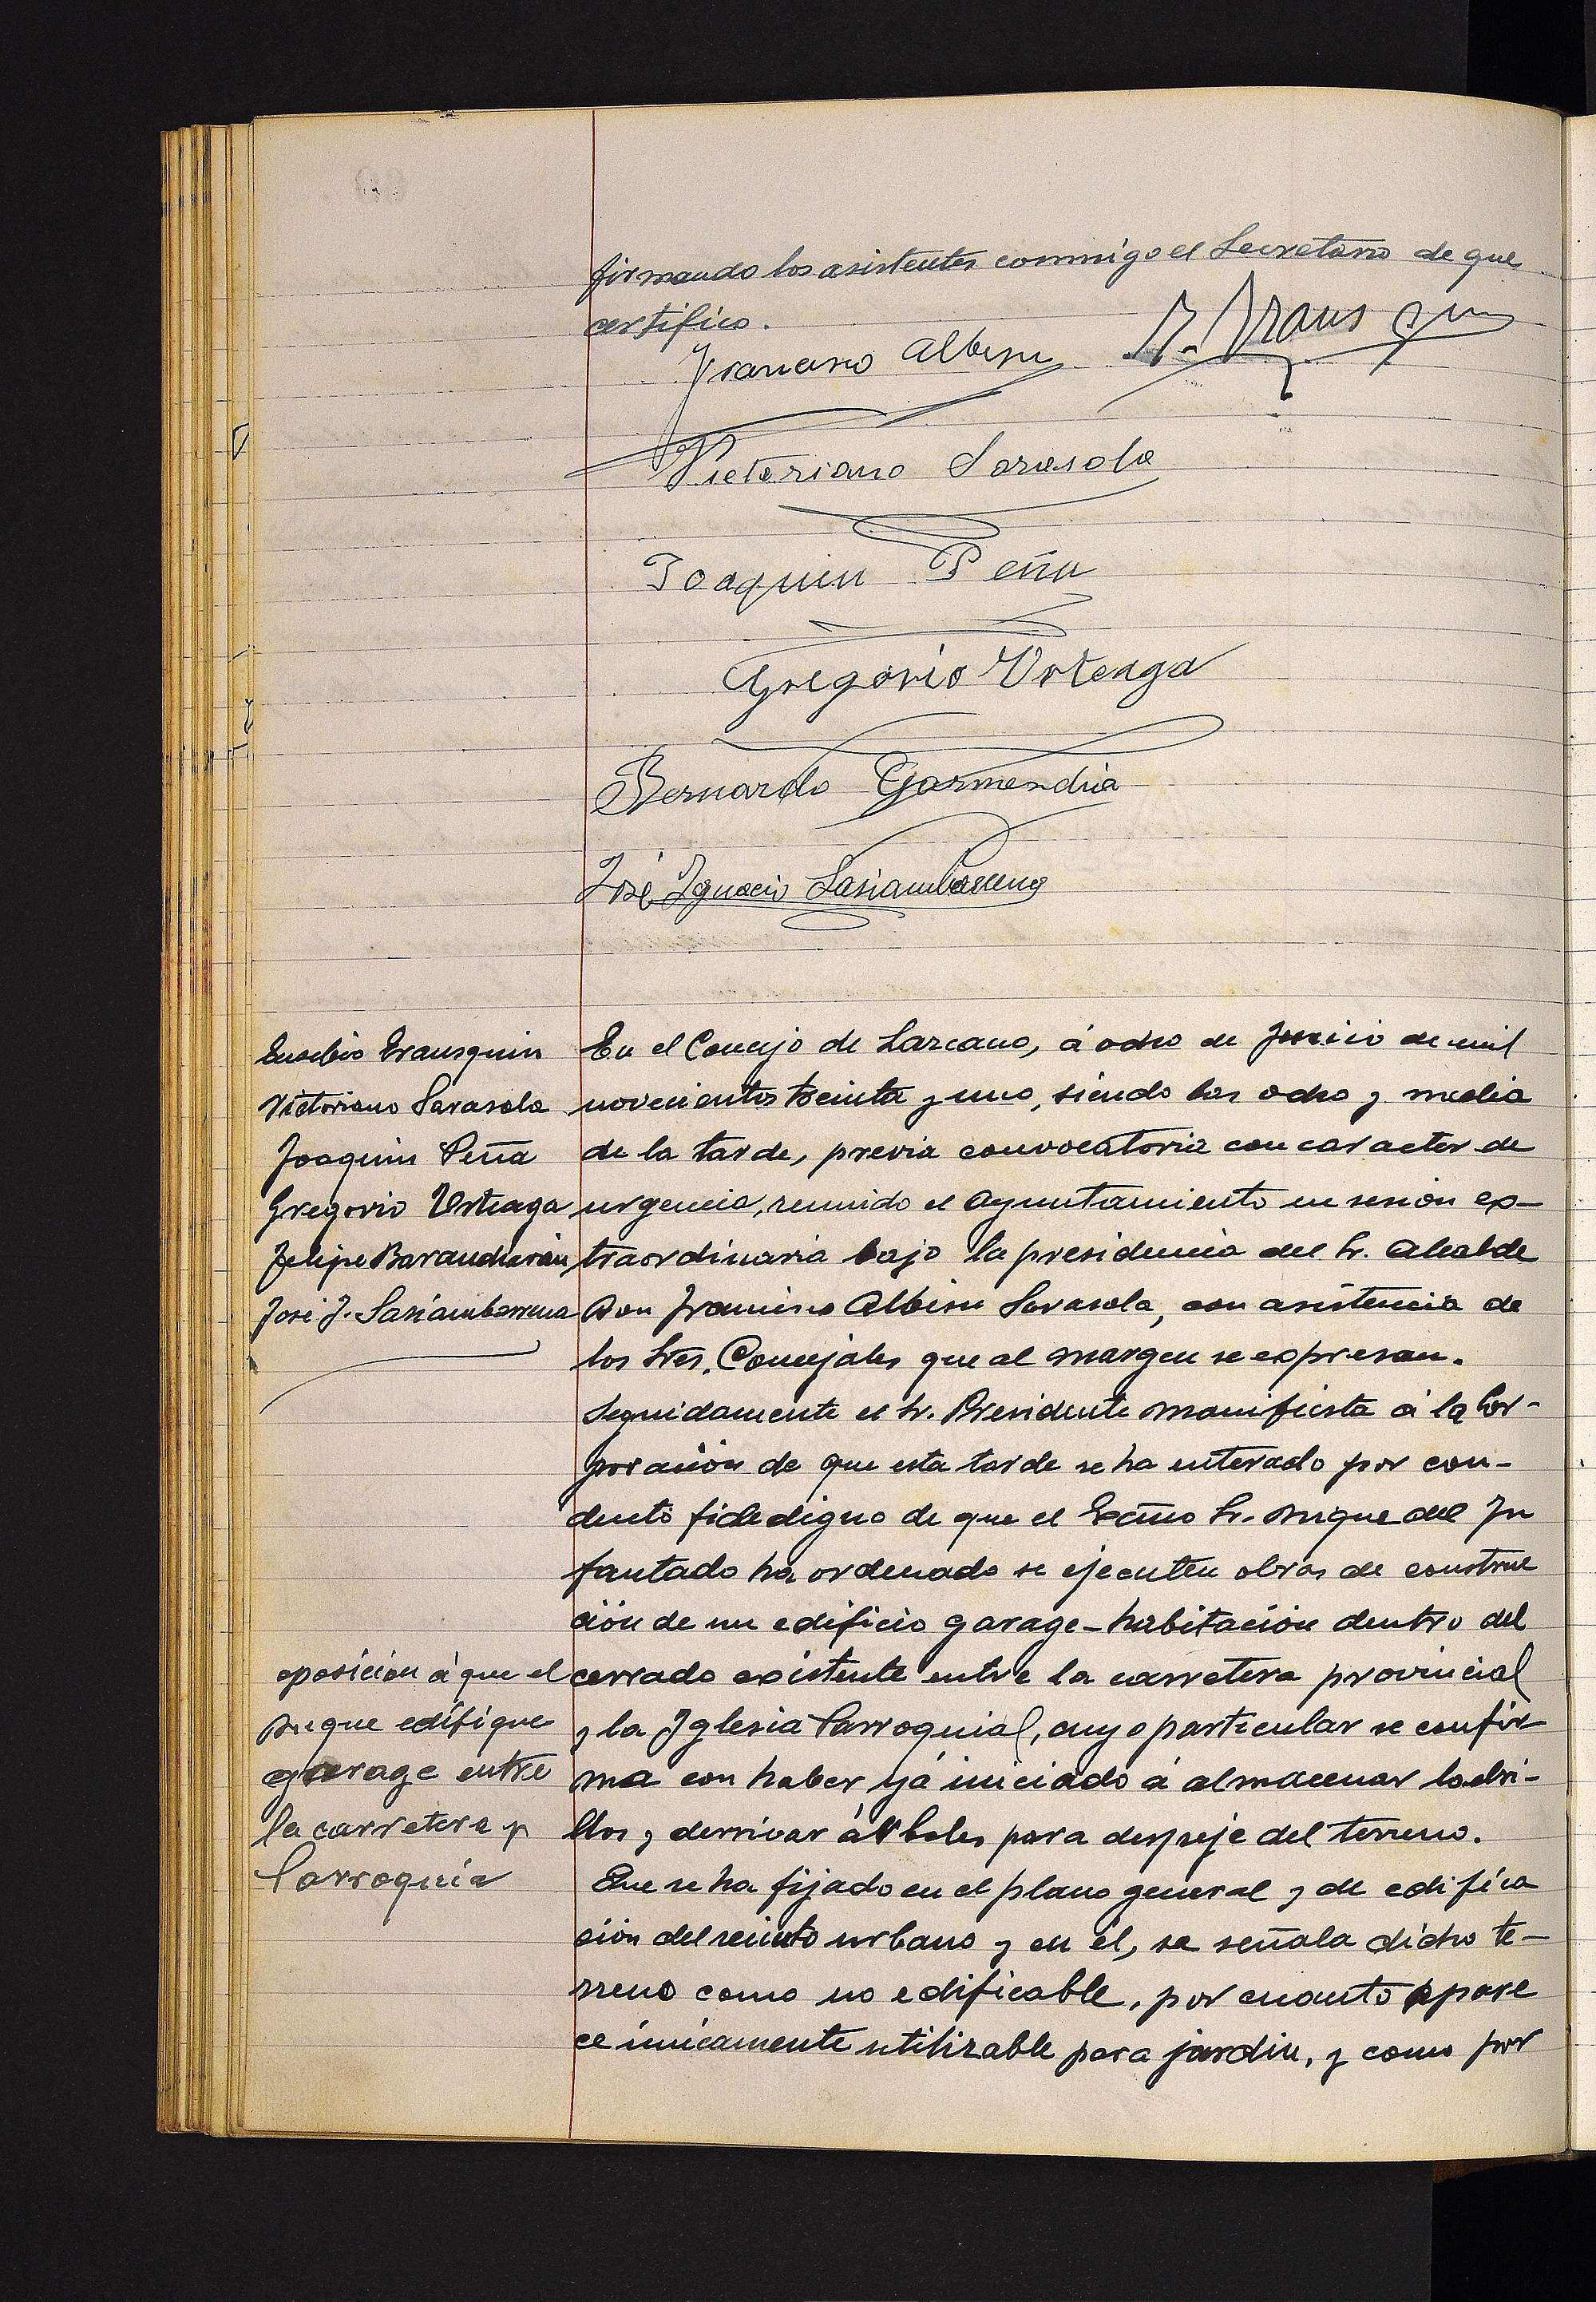 firmando los asistentes conmigo el Secretario de que
certifico.
Francisco Albisu
Victoriano Sarasola
Joaquin Peña
Gregorio Urteaga
Bernardo Garmendia
José Ignacio Lasiambarrena
Eusebio Erausquin
Victoriano Sarasola
Joaquin Peña
Gregorio Urteaga
Felipe Barandiarán
José I. Lasiambarrena
En el Concejo de Lazcano, á ocho de Junio de mil
novecientos treinta y uno, siendo las ocho y media
de la tarde, previa convocatoria con caracter de
urgencia, reunido el Ayuntamiento en sesión ex-
traordinaria bajo la presidencia del Sr. Alcalde
Don Francisco Albisu Sarasola, con asistencia de
los Sres. Concejales que al margen se expresan.
Seguidamente el Sr. Presidente manifiesta á la Cor-
poración de que esta tarde se ha enterado por con-
ducto fidedigno de que el Excmo Sr. Duque del In
fantado ha ordenado se ejecuten obras de construc
ción de un edificio garage-habitación dentro del
cerrado existente entre la carretera provincial
y la Iglesia Parroquial, cuyo particular se confir
ma con haber yá iniciado á almacenar ladri-
llos y derrivar árboles para despeje del terreno.
oposición á que el
Duque edifique
garage entre
la carretera y
Parroquia
Que se ha fijado en el plano general y de edifica
ción del recinto urbano y en él, se señala dicho te-
rreno como no edificable, por cuanto apare
ce únicamente utilizable para jardin, y como por